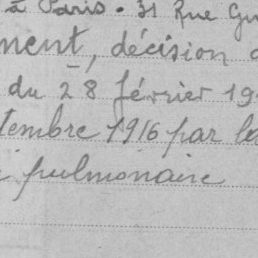 à Paris. 31 Rue Gu
ment, décision d
du 28 février 19
tembre 1916 par la
pulmonaire